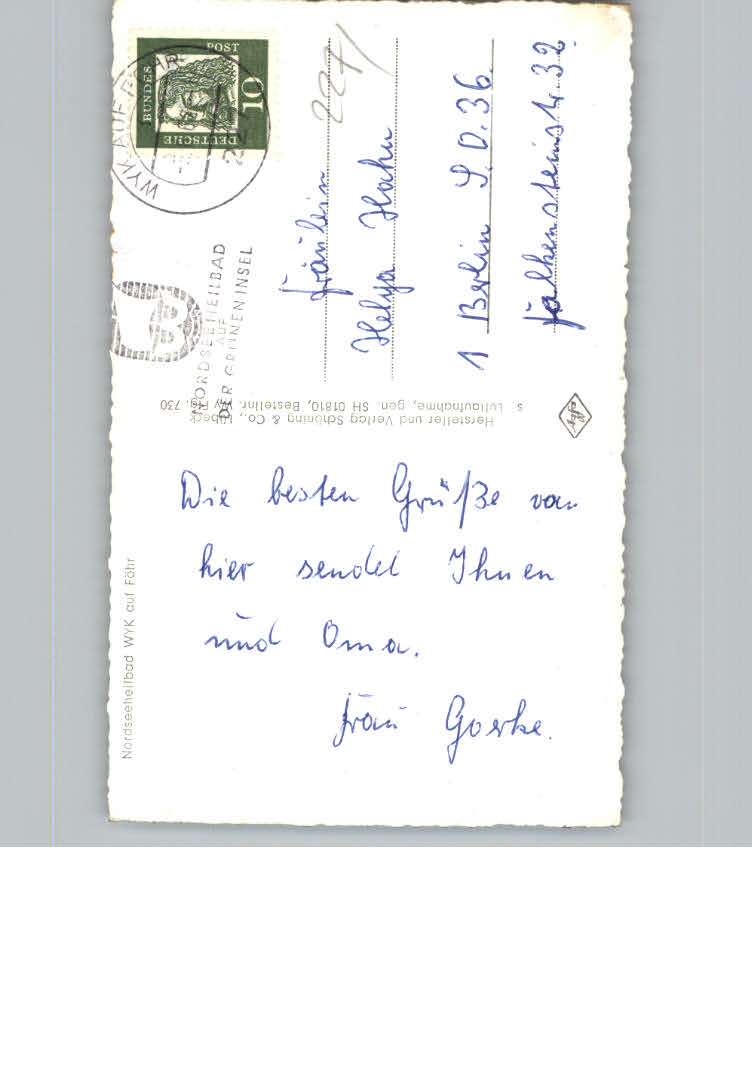 Nordseeheilbad WYK auf Föhr
Die besten Grüße von
hier sendet Ihnen
und Oma.
Frau Goerke.
Hersteller und Verlag Schöning & Co., Lübeck
s Luftaufnahme, gen. SH 01810, Bestellnr. Wy Flg. 730
DEUTSCHE
BUNDES
POST
10
WYK AUF FÖHR
NORDSEEHEILBAD
AUF
DER GRÜNEN INSEL
2271
Fräulein
Helga Hahn
1 Berlin S.O.36.
Falkensteinstr. 32.